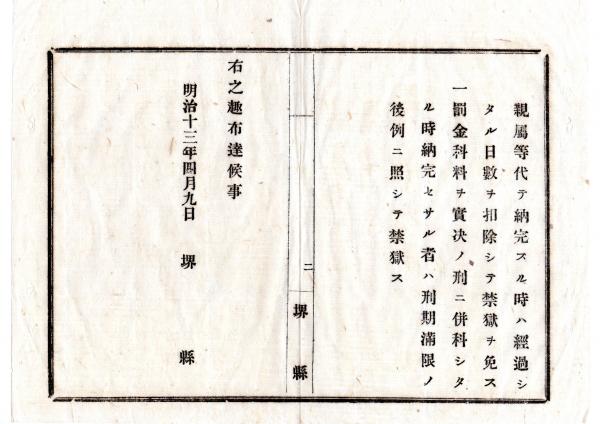 親屬等代テ納完スル時ハ經過シ
タル日數ヲ扣除シテ禁獄ヲ免ス
一罰金科料ヲ實決ノ刑ニ併科シタ
ル時納完セサル者ハ刑期滿限ノ
後例ニ照シテ禁獄ス
二
堺縣
右之趣布達候事
明治十三年四月九日 堺縣